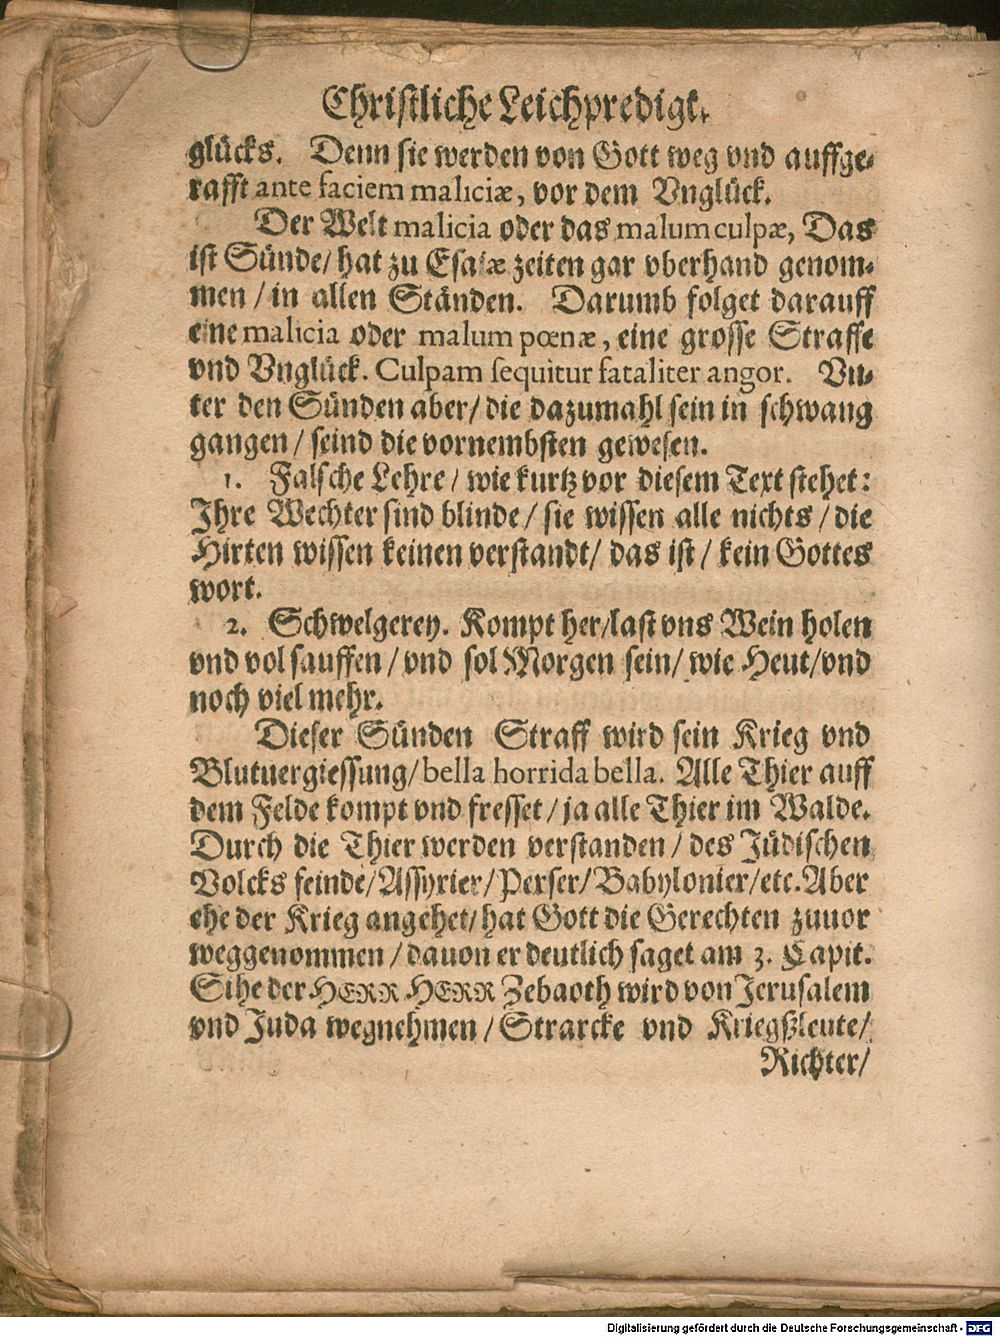 Christliche Leichpredigt.
glücks. Denn sie werden von Gott weg vnd auffge-
rafft ante faciem maliciæ, vor dem Vnglück.
Der Welt malicia oder das malum culpæ, Das
ist Sünde/ hat zu Esaiæ zeiten gar vberhand genom-
men / in allen Ständen. Darumb folget darauff
eine malicia oder malum pœnæ, eine grosse Straffe
vnd Vnglück. Culpam sequitur fataliter angor. Vn-
ter den Sünden aber/ die dazumahl sein in schwang
gangen / seind die vornembsten gewesen.
1. Falsche Lehre / wie kurtz vor diesem Text stehet:
Ihre Wechter sind blinde/ sie wissen alle nichts / die
Hirten wissen keinen verstandt/ das ist / kein Gottes
wort.
2. Schwelgerey. Kompt her/last vns Wein holen
vnd vol sauffen / vnd sol Morgen sein/ wie Heut/vnd
noch viel mehr.
Dieser Sünden Straff wird sein Krieg vnd
Blutuergiessung/ bella horrida bella. Alle Thier auff
dem Felde kompt vnd fresset / ja alle Thier im Walde.
Durch die Thier werden verstanden / des Jüdischen
Volcks feinde/Assyrier/Perser/Babylonier/etc.Aber
ehe der Krieg angehet/ hat Gott die Gerechten zuuor
weggenommen / dauon er deutlich saget am 3. Capit.
Sihe der HERR HERR Zebaoth wird von Jerusalem
vnd Juda wegnehmen / Strarcke vnd Kriegßleute/
Richter/
Digitalisierung gefördert durch die Deutsche Forschungsgemeinschaft - DFG